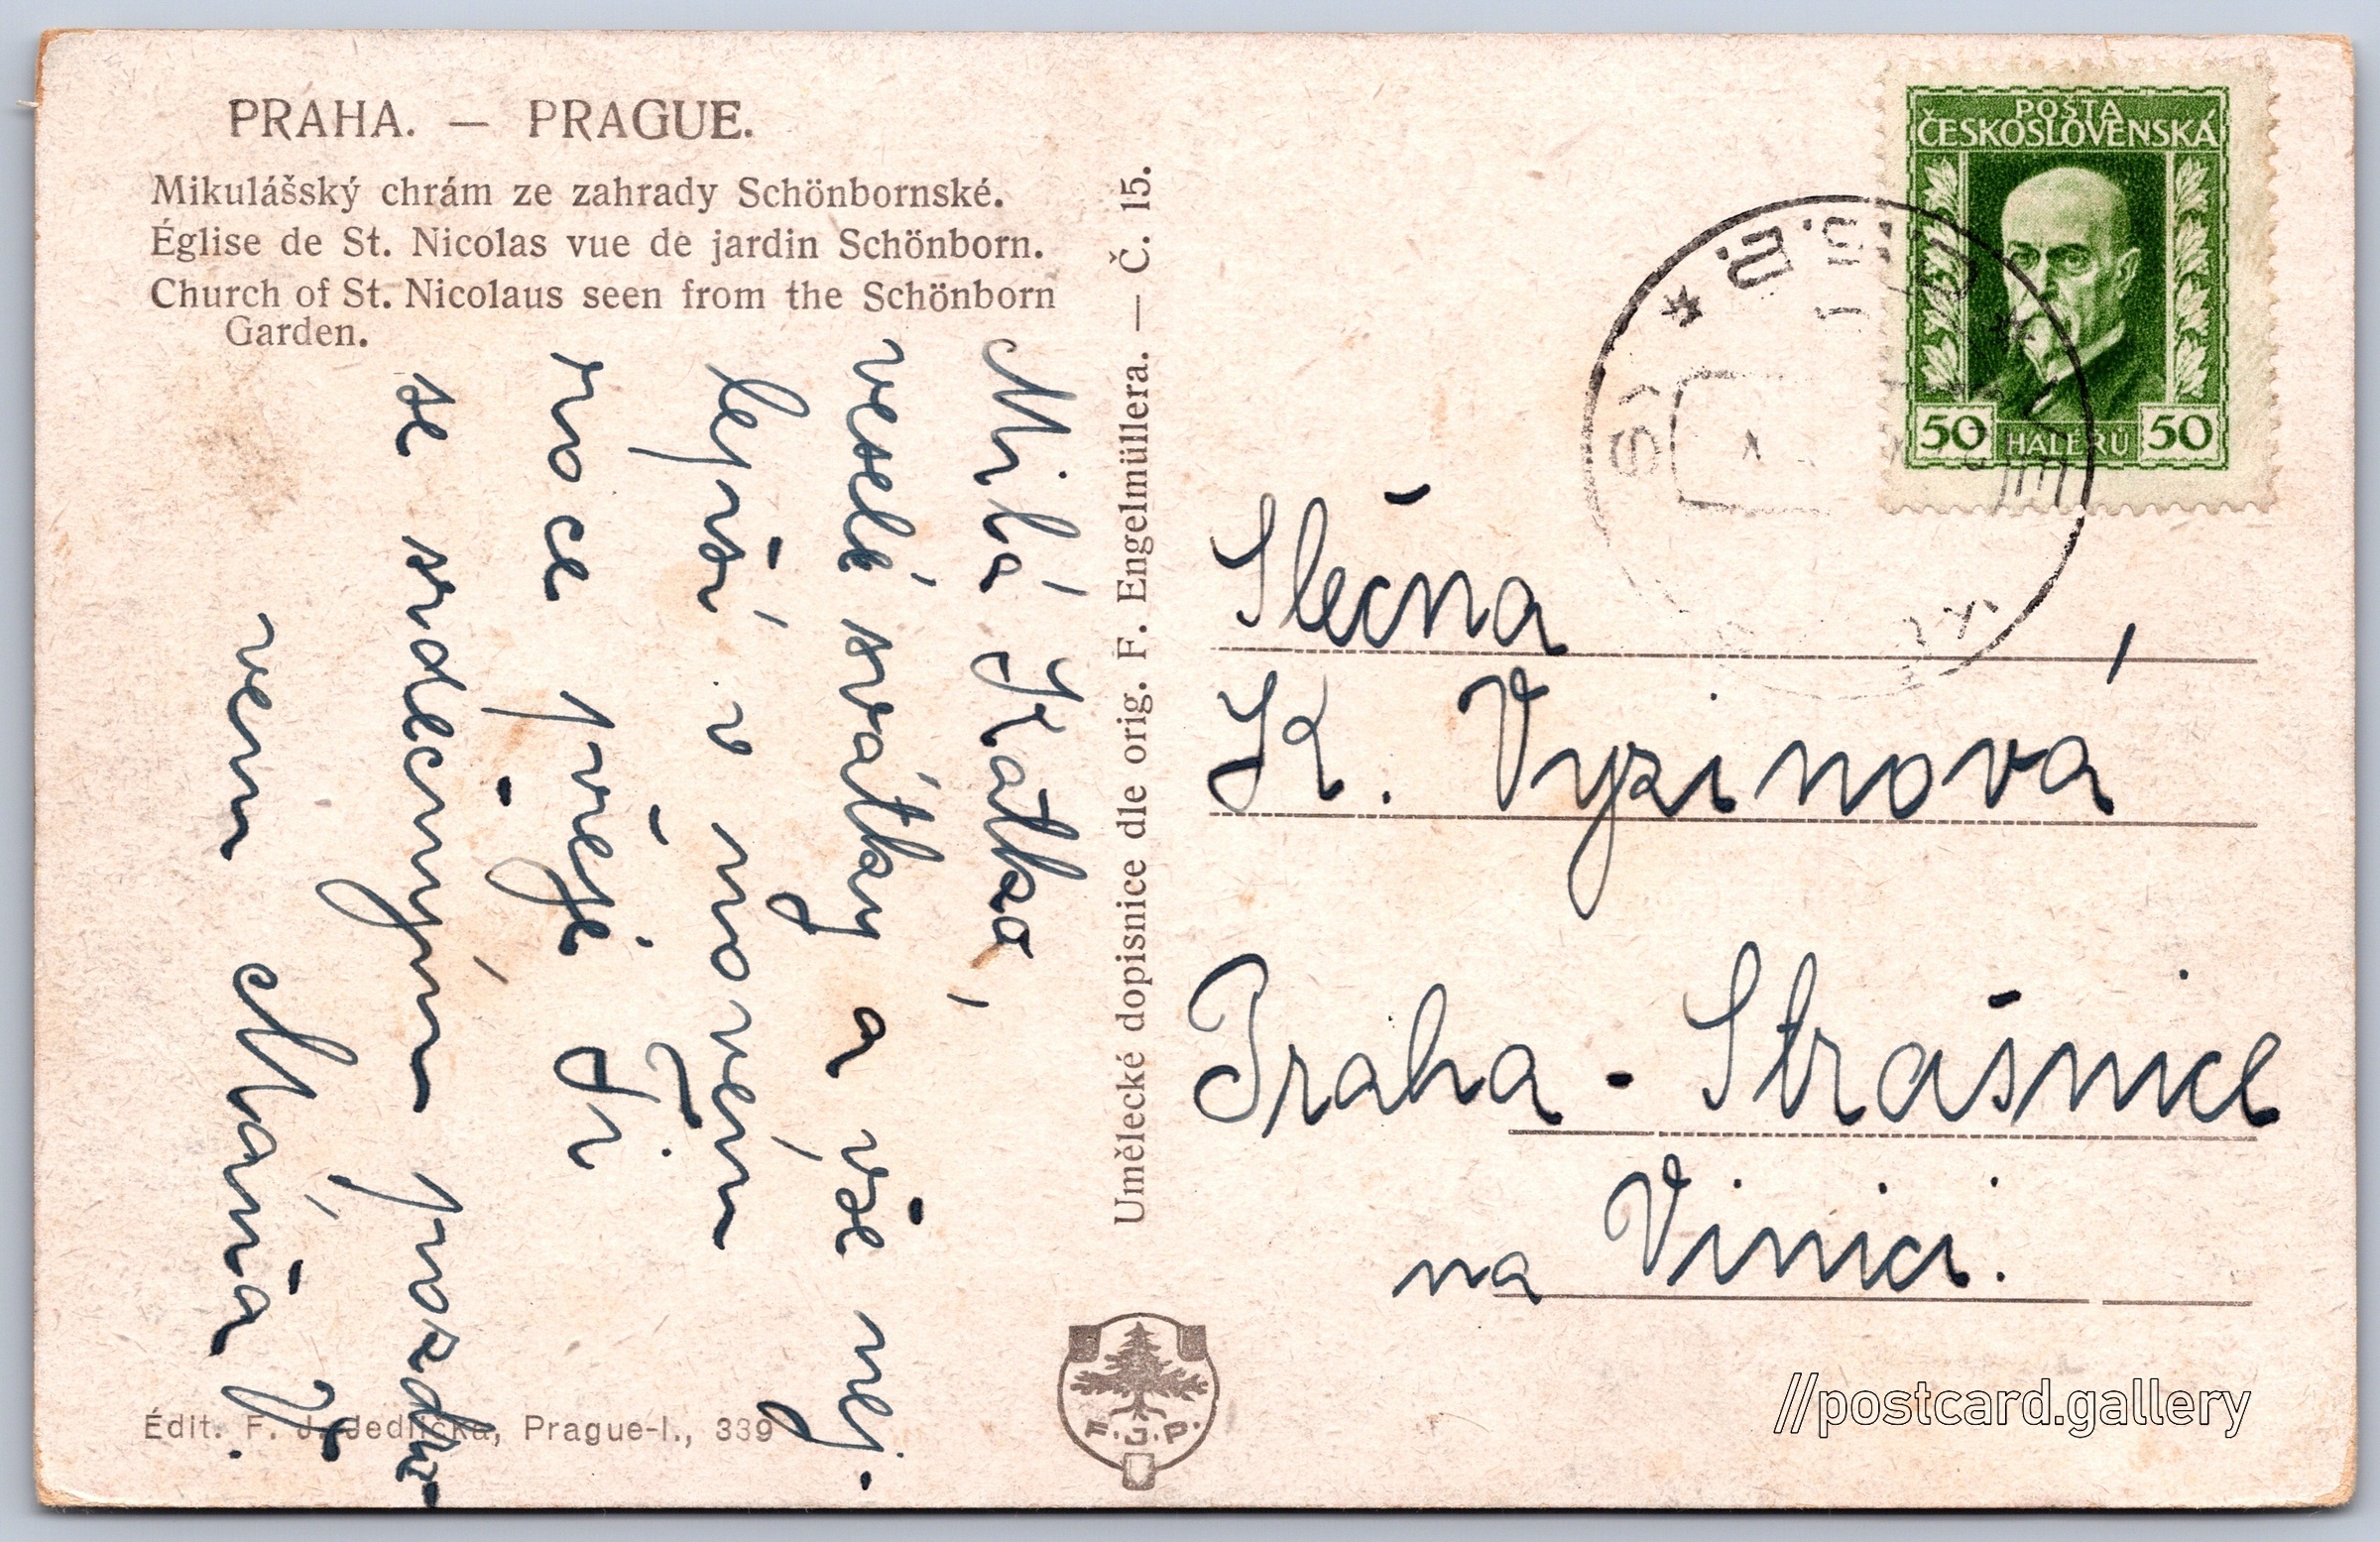 PRAHA. — PRAGUE.
Mikulášský chrám ze zahrady Schönbornské.
Église de St. Nicolas vue de jardin Schönborn.
Church of St. Nicolaus seen from the Schönborn
Garden.
Milá Katko,
veselé svátky a vše nej-
lepší v novém
roce přeje Ti
se srdečným pozdra-
vem Máňa V.
Édit. F. J. Jedlička, Prague-I., 339
Umělecké dopisnice dle orig. F. Engelmüllera. — Č. 15.
F.J.P.
POŠTA
ČESKOSLOVENSKÁ
50 HALÉŘŮ 50
Slečna
K. Vyzinová,
Praha - Strašnice
na Vinici.
//postcard.gallery